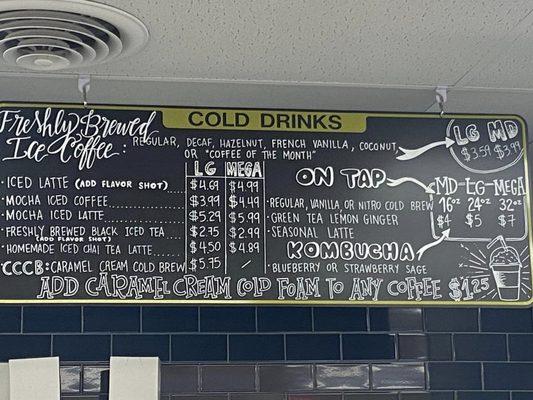 COLD DRINKS
Freshly Brewed
Ice Coffee:
REGULAR, DECAF, HAZELNUT, FRENCH VANILLA, COCONUT
OR "COFFEE OF THE MONTH"
LG MD
$3.59 $3.99
LG MEGA
ICED LATTE (ADD FLAVOR SHOT) $4.69 $4.99
MOCHA ICED COFFEE $3.99 $4.49
MOCHA ICED LATTE $5.29 $5.99
FRESHLY BREWED BLACK ICED TEA $2.75 $2.99
(ADD FLAVOR SHOT)
HOMEMADE ICED CHAI TEA LATTE $4.50 $4.89
CCCB: CARAMEL CREAM COLD BREW $5.75 /
ON TAP
MD-LG-MEGA
16oz 24oz 32oz
$4 $5 $7
· REGULAR, VANILLA, OR NITRO COLD BREW
· GREEN TEA LEMON GINGER
· SEASONAL LATTE
KOMBUCHA
· BLUEBERRY OR STRAWBERRY SAGE
ADD CARAMEL CREAM COLD FOAM TO ANY COFFEE $1.25